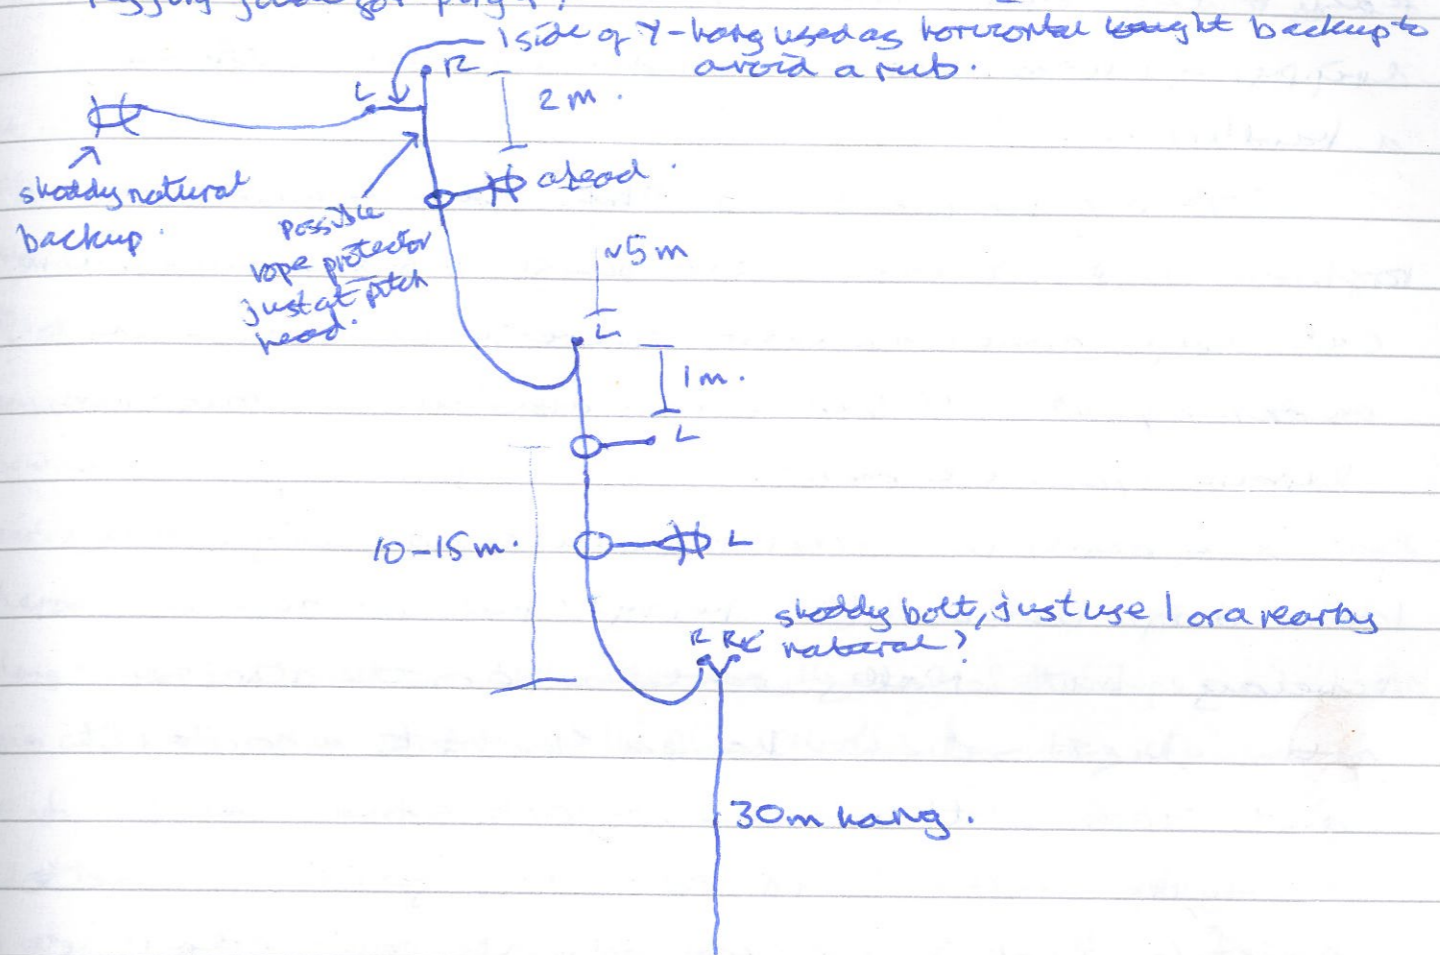 1 side of Y-hang used as horizontal taught backup to
avoid a rub.
R
L
2m.
shoddy natural
backup.
possible
rope protector
just at pitch
head.
~5m
L
1m.
L
10-15m.
L
shoddy bolt, just use 1 or a nearby
natural?
R
30m hang.